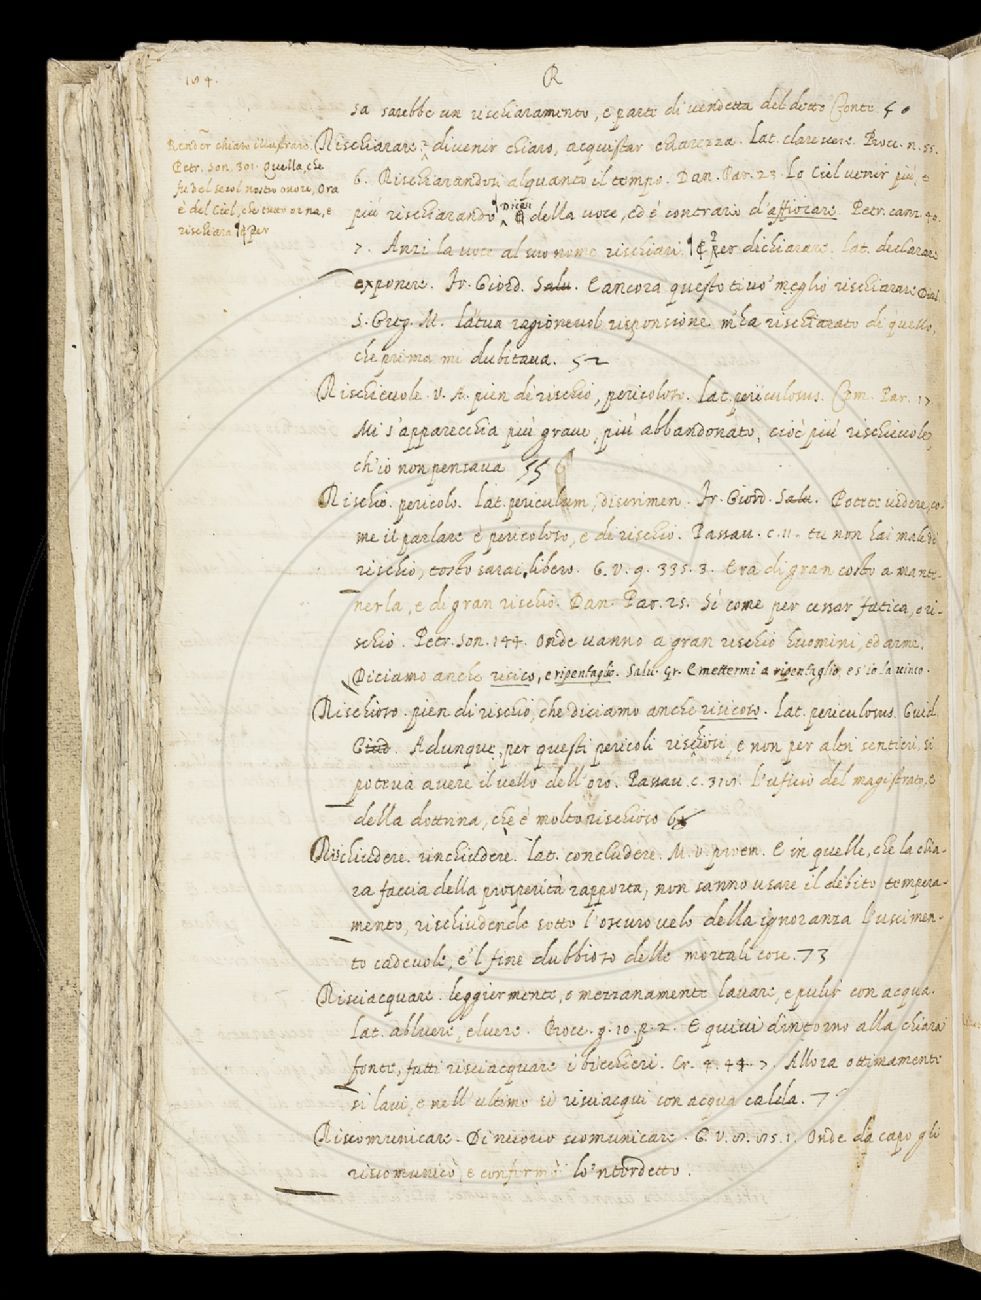 R
sa sarebbe un rischiaramento, e parte di vendetta del detto Conte. 50
Render chiaro illustrare.
Petr. Son. 301. Quella, che
fu del secol nostro onore, Ora
è del Ciel, che tutto orna, e
rischiara ¶ per
Rischiarare. divenir chiaro, acquistar chiarezza. Lat. clarescere. Bocc. n. 55.
6. Rischiarandosi alquanto il tempo. Dan. Par. 23. Lo Ciel venir più, e
più rischiarando ¶ Dicesi della voce, ed è contrario d'affiocare. Petr. canz. 40.
7. Anzi la voce al suo nome rischiari ¶ per dichiarare. Lat. declarare
exponere. Fr. Giord. Salu. E ancora questo tivo meglio rischiarare Dial.
S. Greg. M. La tua ragionevol risponsione m'ha rischiarato di quello,
che prima mi dubitava. 52
Rischievole. V. A. pien di rischio, pericoloso. Lat. periculosus. Com. Par. 17
Mi s'apparecchia più grave, più abbandonato, cioè più rischievole,
ch'io non pensava 55
Rischio. pericolo. Lat. periculum, discrimen. Fr. Giord. Salu. Potete vedere, co-
me il parlare è pericoloso, e di rischio. Passav. c. 11. tu non hai male di
rischio, tosto sarai libero. G. V. 9. 335. 3. Era di gran costo a mante-
nerla, e di gran rischio. Dan. Par. 25. Sì come per cessar fatica, o ri-
schio. Petr. Son. 144. Onde vanno a gran rischio huomini, ed arme.
Diciamo anche risico, e ripentaglio. Salu. Gr. E mettermi a ripentaglio, e s'io la vinco.
Rischioso. pien di rischio, che diciamo anche risicoso. Lat. periculosus. Guid.
Giud. Adunque, per questi pericoli rischiosi, e non per altri sentieri, si
potrva avere il vello dell'oro. Passav. c. L'uficio del magistrato, e
della dottrina, che è molto rischioso
Rischiudere. rinchiudere. Lat. concludere. M. V. proem. E in quelli, che la chia-
ra faccia della prosperità rapporta, non sanno usare il debito tempera-
mento, rischiudendo sotto l'oscuro velo della ignoranza l'uscimen-
to cadevole, e 'l fine dubbioso delle mortali cose. 73
Risciacquare. leggiermente, o mezzanamente lavare, e pulir con acqua.
Lat. abluere, eluere. Bocc. g. 10. p. 2. E quivi dintorno alla chiara
fonte, fatti risciacquare i bicchieri. Cr. 4. 44. 7. Allora ottimamente
si lavi, e nell'ultimo si risciacqui con acqua calda. 7
Riscomunicare. Di nuovo scomunicare. G. V. Onde da capo gli
riscomunicò, e confirmò lo 'nterdetto.